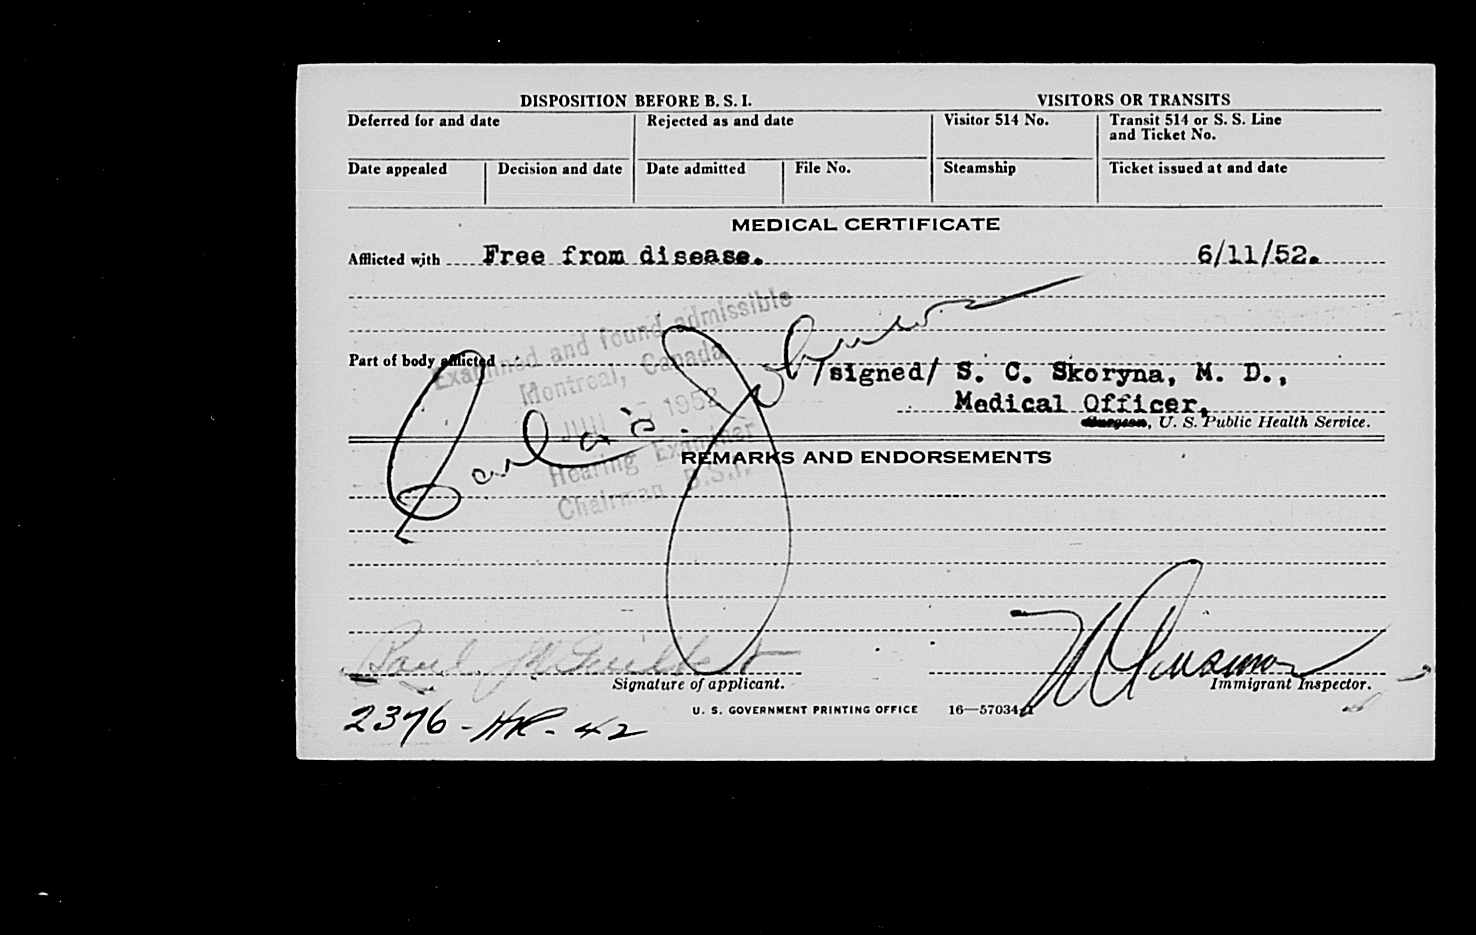 DISPOSITION BEFORE B. S. I.
VISITORS OR TRANSITS
Deferred for and date
Rejected as and date
Visitor 514 No.
Transit 514 or S. S. Line
and Ticket No.
Date appealed
Decision and date
Date admitted
File No.
Steamship
Ticket issued at and date
MEDICAL CERTIFICATE
Afflicted with Free from disease. 6/11/52.
Examined and found admissible
Part of body afflicted
Montreal, Canada
/signed/ S. C. Skoryna, M. D.,
1952
Medical Officer,
Surgeon, U. S. Public Health Service.
Hearing Examiner
REMARKS AND ENDORSEMENTS
Chairman B.S.I.
Paul
Signature of applicant.
Immigrant Inspector.
2376-HR-42
U. S. GOVERNMENT PRINTING OFFICE 16—57034-1